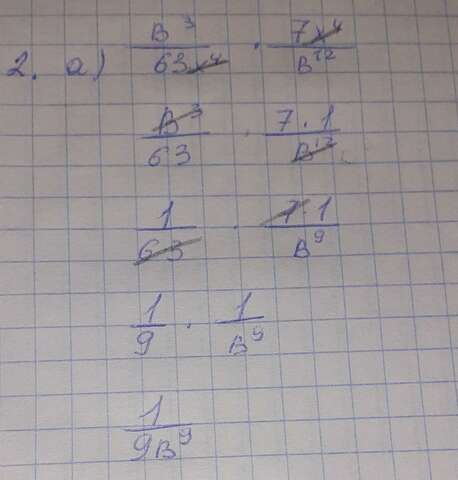 2. а) в³/63x⁴ · 7x⁴/в¹²
в³/63 · 7·1/в¹²
1/63 · 7·1/в⁹
1/9 · 1/в⁹
1/9в⁹